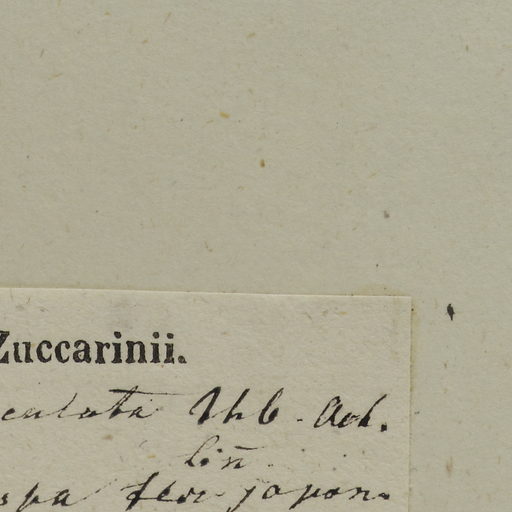 Zuccarinii.
culata Thb. Act.
Lin̄
spa flor. japon.